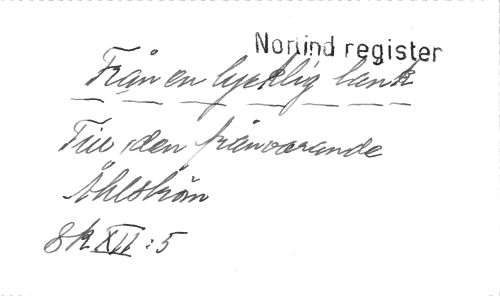 Norlind register
Från en lycklig bänk
Till den frånvarande
Åhlström
8k XII:5